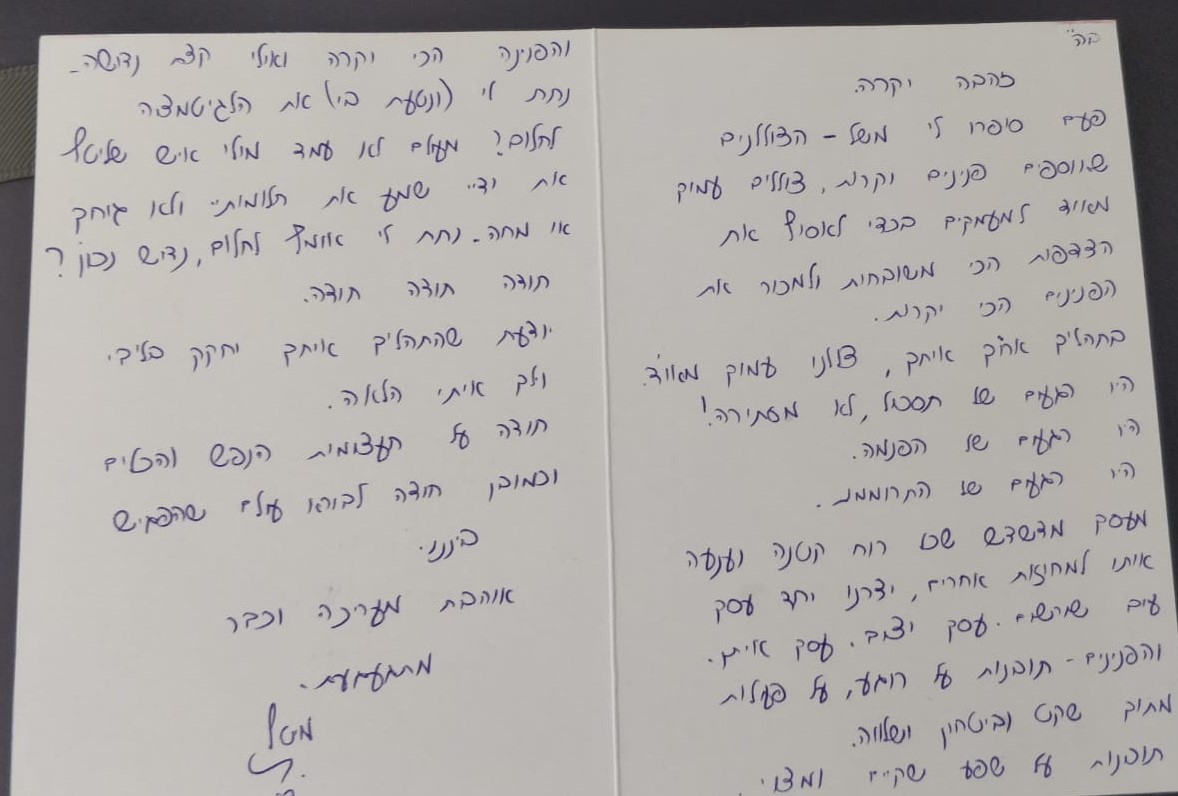 בה"
זהבה יקרה.
פעם סיפרו לי משל - הצוללנים
שאוספים פנינים יקרות, צוללים עמוק
מאוד למעמקים בכדי לאסוף את
הצדפות הכי משובחות ולמכור את
הפנינים הכי יקרות.
בתהליך ארוך איתך, צללנו עמוק מאוד.
היו רגעים של תסכול, לא מסתירה!
היו רגעים של הפנמה.
היו רגעים של התרוממות.
מעסק מדשדש שכל רוח קטנה נענעה
אותו למחוזות אחרים, יצרנו יחד עסק
עם שורשים. עסק יציב. עסק איתן.
והפנינים - תובנות על רוגע, על פעילות
מתוך שקט וביטחון ושלווה.
תובנות על שפע שקיים ומצוי.
והפנינה הכי יקרה ואולי קצת נדושה -
נתת לי (ונטעת בי) את הלגיטמציה
לחלום? מעולם לא עמד מולי איש שליטף
את ידיי שמע את חלומותיי ולא גיחך
או מחה. נתת לי אומץ לחלום, נדוש נכון?
תודה תודה תודה.
יודעת שהתהליך איתך יחקק בליבי.
וילך איתי הלאה.
תודה על תעצומות הנפש והכלים
וכמובן תודה לבורא עולם שהפגיש
ביננו.
אוהבת מעריכה וכבר
מתגעגעת.